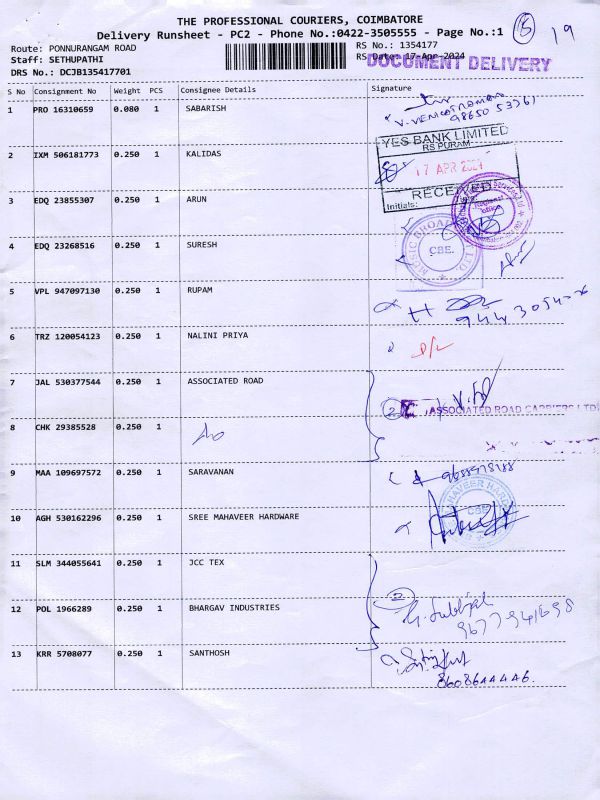 THE PROFESSIONAL COURIERS, COIMBATORE
Delivery Runsheet - PC2 - Phone No.:0422-3505555 - Page No.:1 19
Route: PONNURANGAM ROAD RS No.: 1354177
Staff: SETHUPATHI RS Date: 17-Apr-2024
DOCUMENT DELIVERY
DRS No.: DCJB135417701
S No Consignment No Weight PCS Consignee Details Signature
1 PRO 16310659 0.080 1 SABARISH
V. VENKATRAMAN
98650 53761
YES BANK LIMITED
RS PURAM
2 IXM 506181773 0.250 1 KALIDAS
17 APR 2024
RECEIVED
Initials:
3 EDQ 23855307 0.250 1 ARUN
4 EDQ 23268516 0.250 1 SURESH
CBE.
5 VPL 947097130 0.250 1 RUPAM
6 TRZ 120054123 0.250 1 NALINI PRIYA
7 JAL 530377544 0.250 1 ASSOCIATED ROAD
2 ASSOCIATED ROAD CARRIERS LTD
8 CHK 29385528 0.250 1
9 MAA 109697572 0.250 1 SARAVANAN
10 AGH 530162296 0.250 1 SREE MAHAVEER HARDWARE
CBE
11 SLM 344055641 0.250 1 JCC TEX
2
12 POL 1966289 0.250 1 BHARGAV INDUSTRIES
9677941698
13 KRR 5708077 0.250 1 SANTHOSH
8608644446.